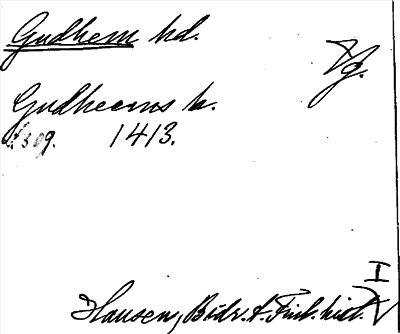 Gudhem hd.
Vg.
Gudheems h.
s. 309. 1413.
I
Hausen, Bidr. t. Finl. hist. V